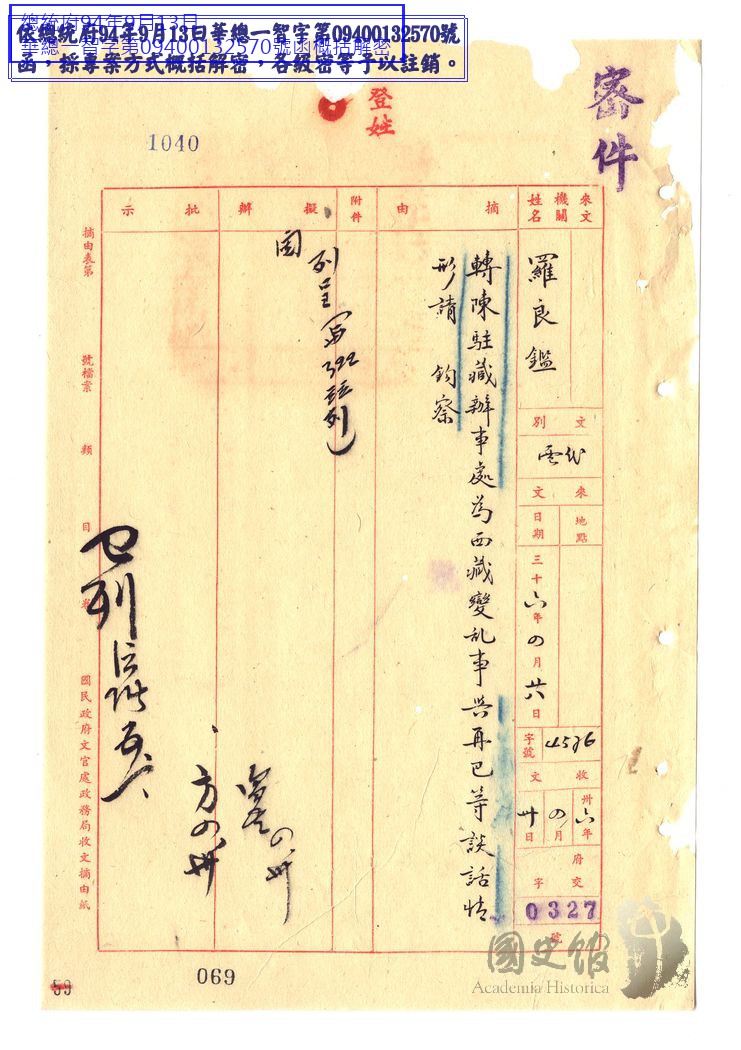 總統府94年9月13日
華總一智字第09400132570號函概括解密
依總統府94年9月13日華總一智字第09400132570號
函，採專案方式概括解密，各級密等予以註銷。
密件
登姓
1040
來文機關姓名
羅良鑑
文別
代電
來文
地點
日期
三十六年四月廿六日
字號
4526
收文
卅六年四月卅日
府交字
0327
號
摘由
轉陳駐藏辦事處為西藏變亂事與再巴等談話情
形請 鈞察
附件
擬辦
批示
摘由表第 號檔案 類 目
國民政府文官處政務局收文摘由紙
方四卅
四卅
069
59
國史館
Academia Historica